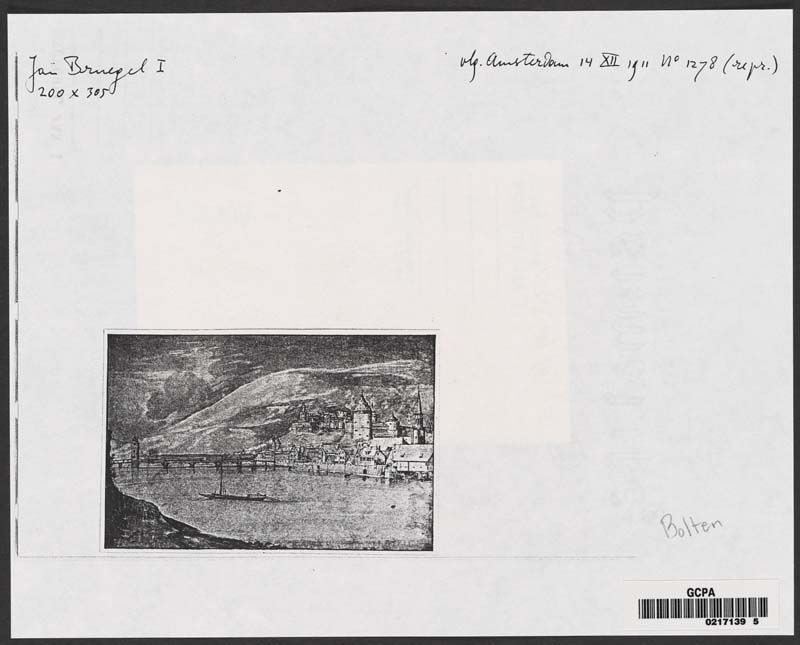 Jan Bruegel I
200 x 305
vlg. Amsterdam 14 XII 1911 No 1278 (repr.)
Bolten
GCPA
0217139 5